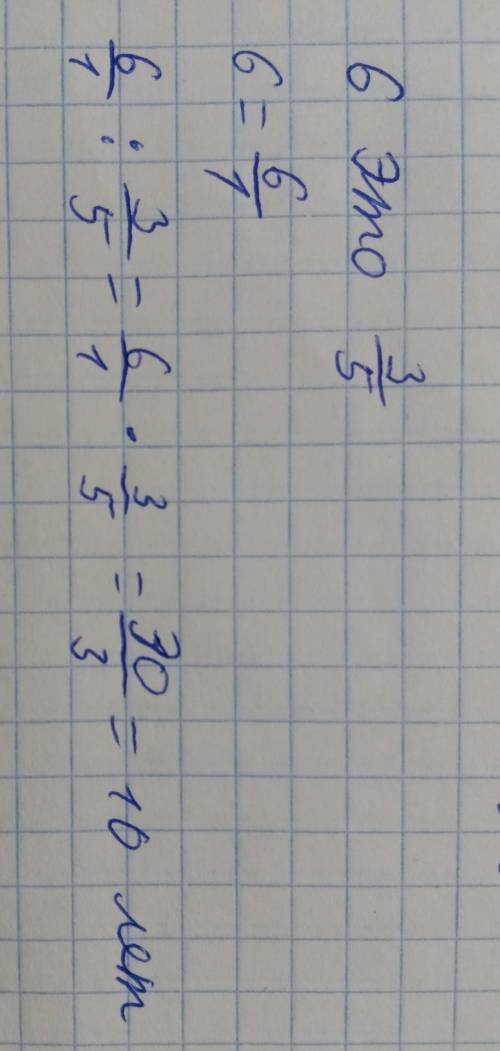 6 это 3/5
6 = 6/1
6/1 : 3/5 = 6/1 · 3/5 = 30/3 = 10 лет